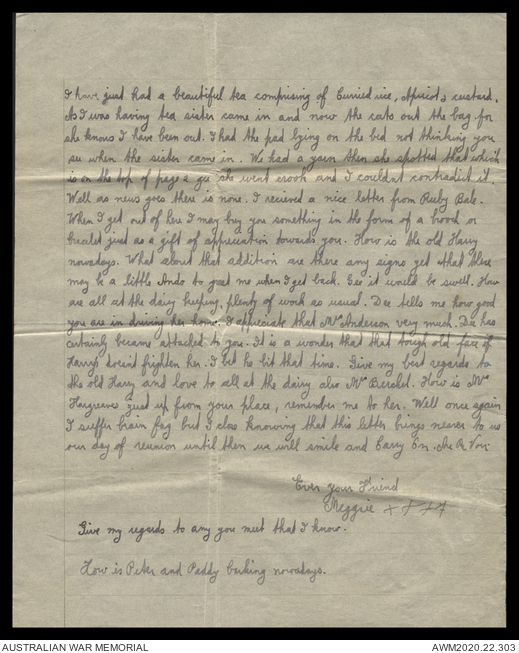 I have just had a beautiful tea comprising of Curried rice, Apricot & custard.
As I was having tea sister came in and now the cats out the bag for
she knows I have been out. I had the pad lying on the bed not thinking you
see when the sister came in. We had a yarn then she spotted that which
is on the top of page 2 gee she went crook and I couldnt contradict it.
Well as news goes there is none. I recieved a nice letter from Ruby Bale.
When I get out of here I may buy you something in the form of a brooch or
bracelet just as a gift of appreciation towards you. How is the old Harry
nowadays. What about that addition are there any signs yet that there
may be a little Ando to greet me when I get back. Gee it would be swell. How
are all at the dairy keeping, plenty of work as usual. Dee tells me how good
you are in driving her home. I appreciate that Mrs Anderson very much. Dee has
certainly became attached to you. It is a wonder that that tough old face of
Harrys doesnt frighten her. I bet he bit that time. Give my best regards to
the old Harry and love to all at the dairy also Mrs How is Mrs
Hargreaves just up from your place, remember me to her. Well once again
I suffer brain fag but I close knowing that this letter brings nearer to us
our day of reunion until then we will smile and Carry On.
Ever your Friend
Meggsie x x x x
Give my regards to any you meet that I know.
How is Peter and Paddy barking nowadays.
AUSTRALIAN WAR MEMORIAL
AWM2020.22.303